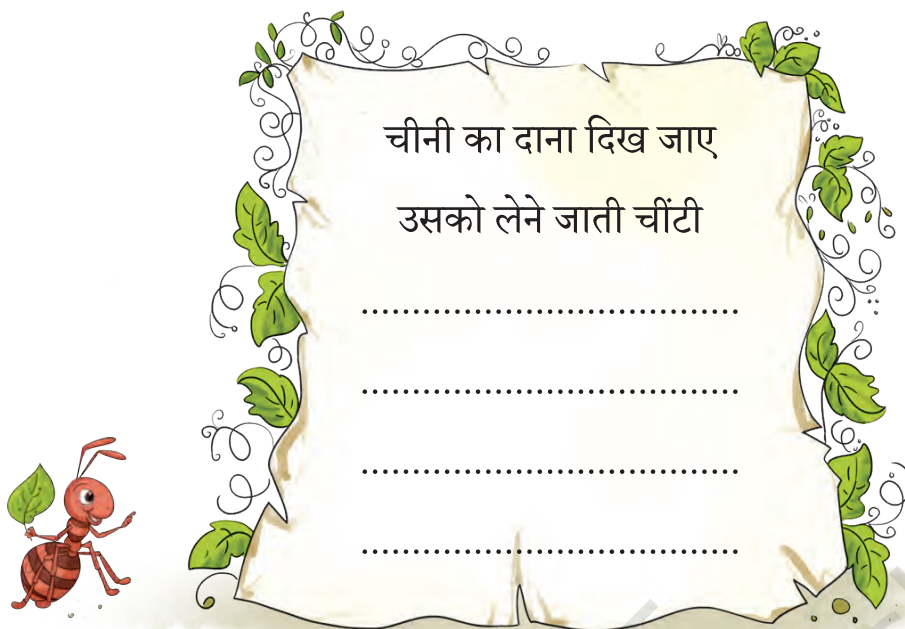 चीनी का दाना दिख जाए
उसको लेने जाती चींटी
.....................................
.....................................
.....................................
.....................................